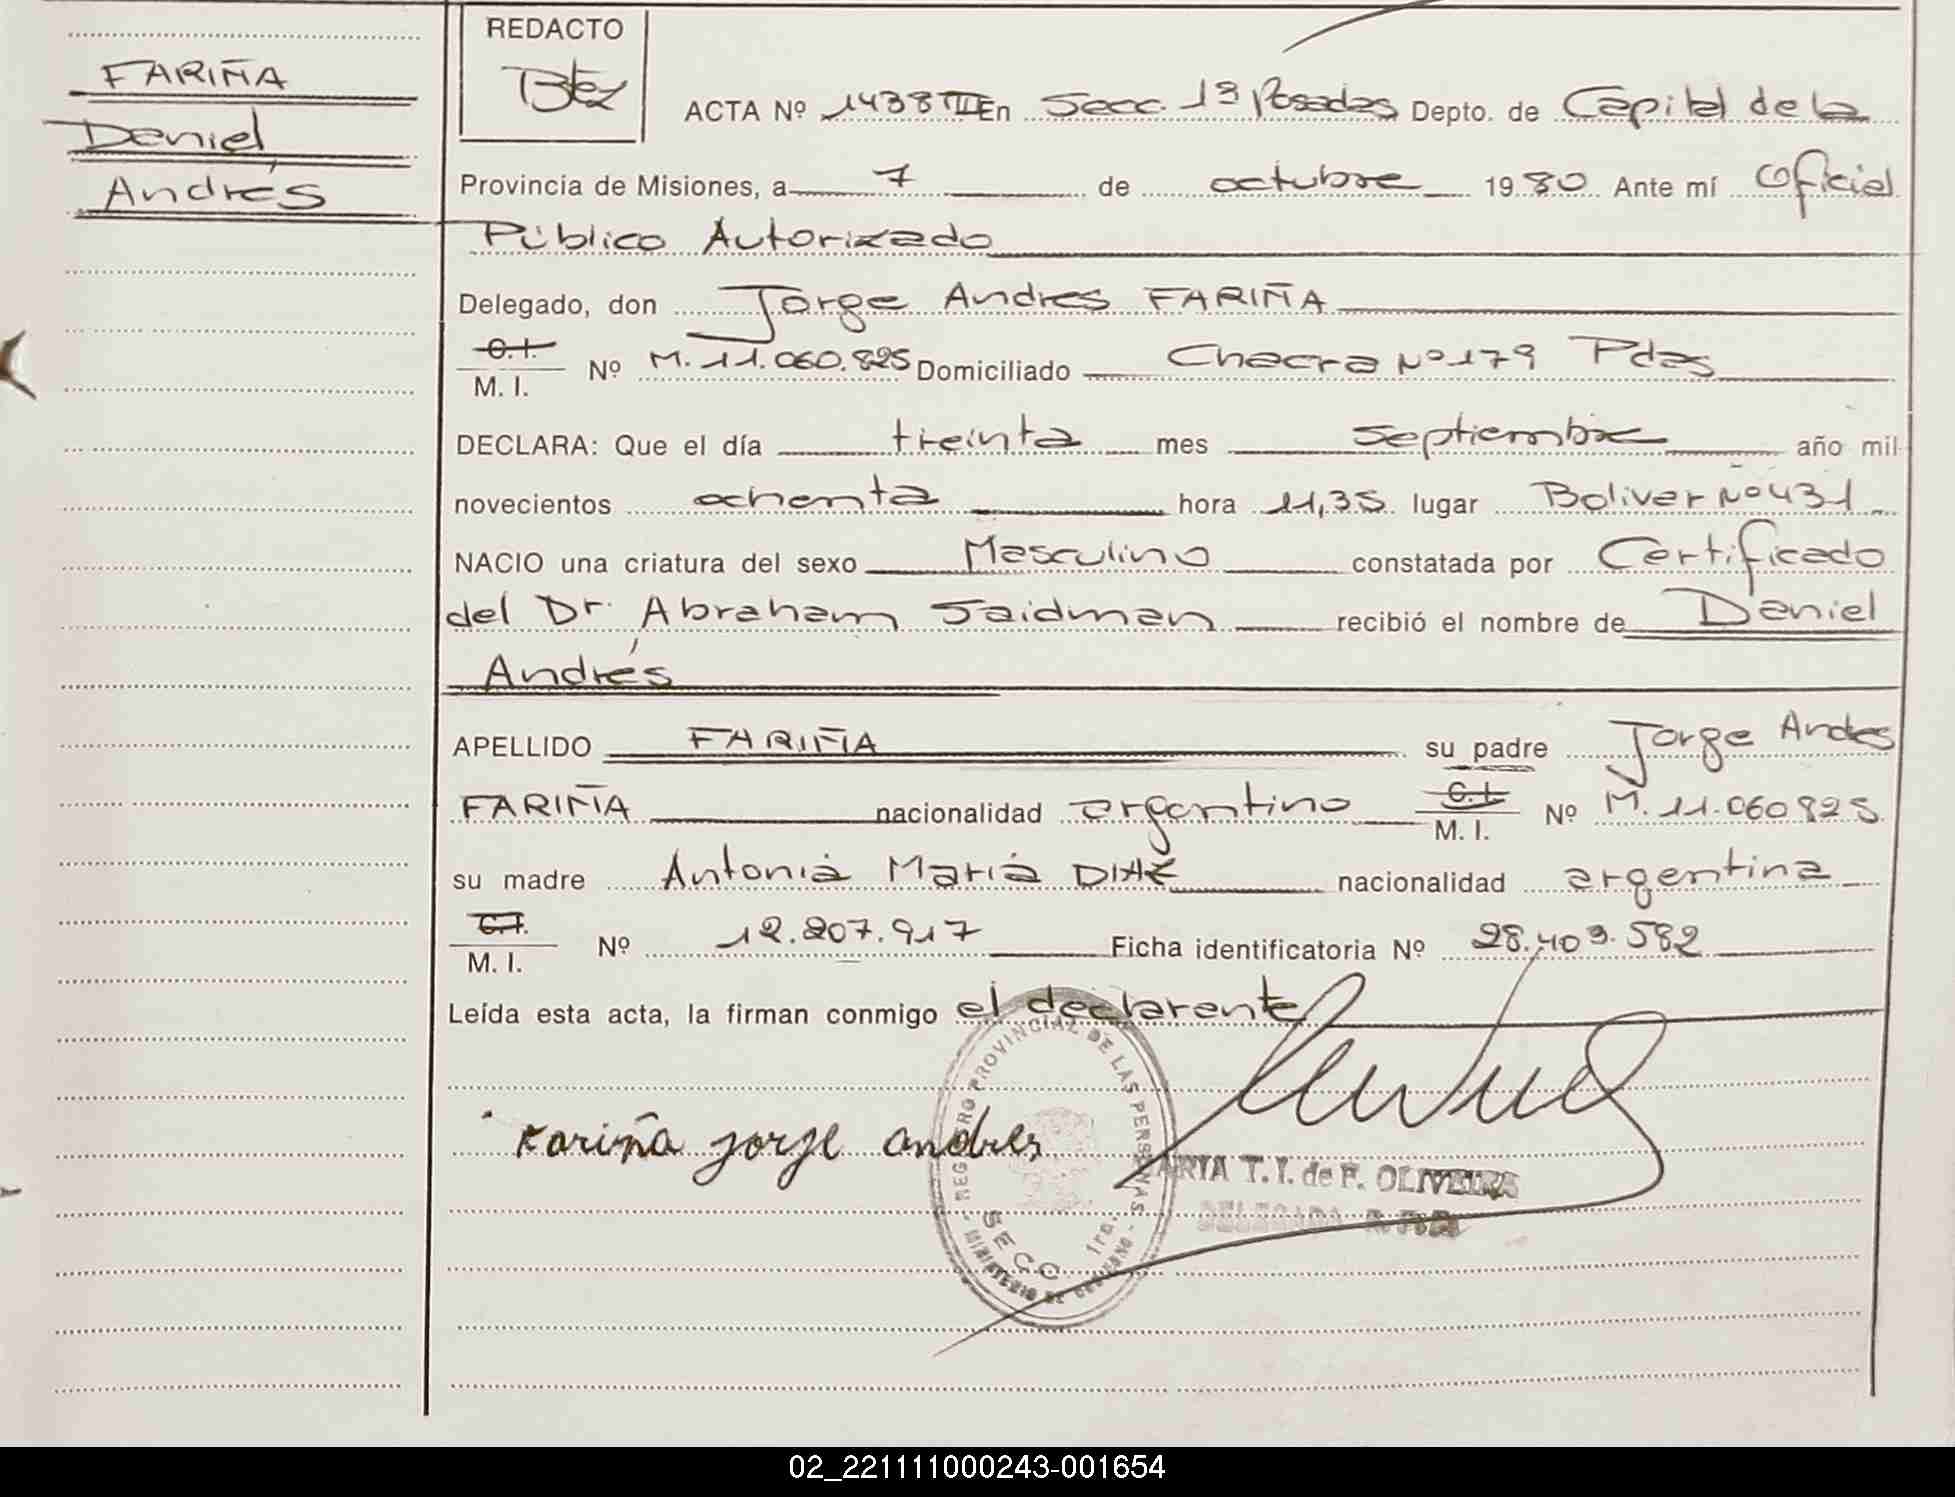 FARIÑA
Daniel
Andrés
REDACTO
Btez
ACTA Nº 1438 TIII En Secc. 1ª Posadas Depto. de Capital de la
Provincia de Misiones, a 7 de octubre 1980 Ante mí Oficial
Público Autorizado
Delegado, don Jorge Andres FARIÑA
C.I.
M. I. Nº M. 11.060.825 Domiciliado Chacra Nº 179 Pdas
DECLARA: Que el día treinta mes septiembre año mil
novecientos ochenta hora 11,35 lugar Bolivar Nº 431
NACIO una criatura del sexo Masculino constatada por Certificado
del Dr. Abraham Saidman recibió el nombre de Daniel
Andrés
APELLIDO FARIÑA su padre Jorge Andres
FARIÑA nacionalidad argentino C.I. M. I. Nº M. 11.060825
su madre Antonia Maria DIAZ nacionalidad argentina
C.I.
M. I. Nº 12.207.917 Ficha identificatoria Nº 28.403.582
Leída esta acta, la firman conmigo el declarante
Fariña Jorge andres
REGISTRO PROVINCIAL DE LAS PERSONAS - MINISTERIO DE GOBIERNO -
SECC 1ra.
MARIA T. I. de F. OLIVEIRA
DELEGADA
02_221111000243-001654